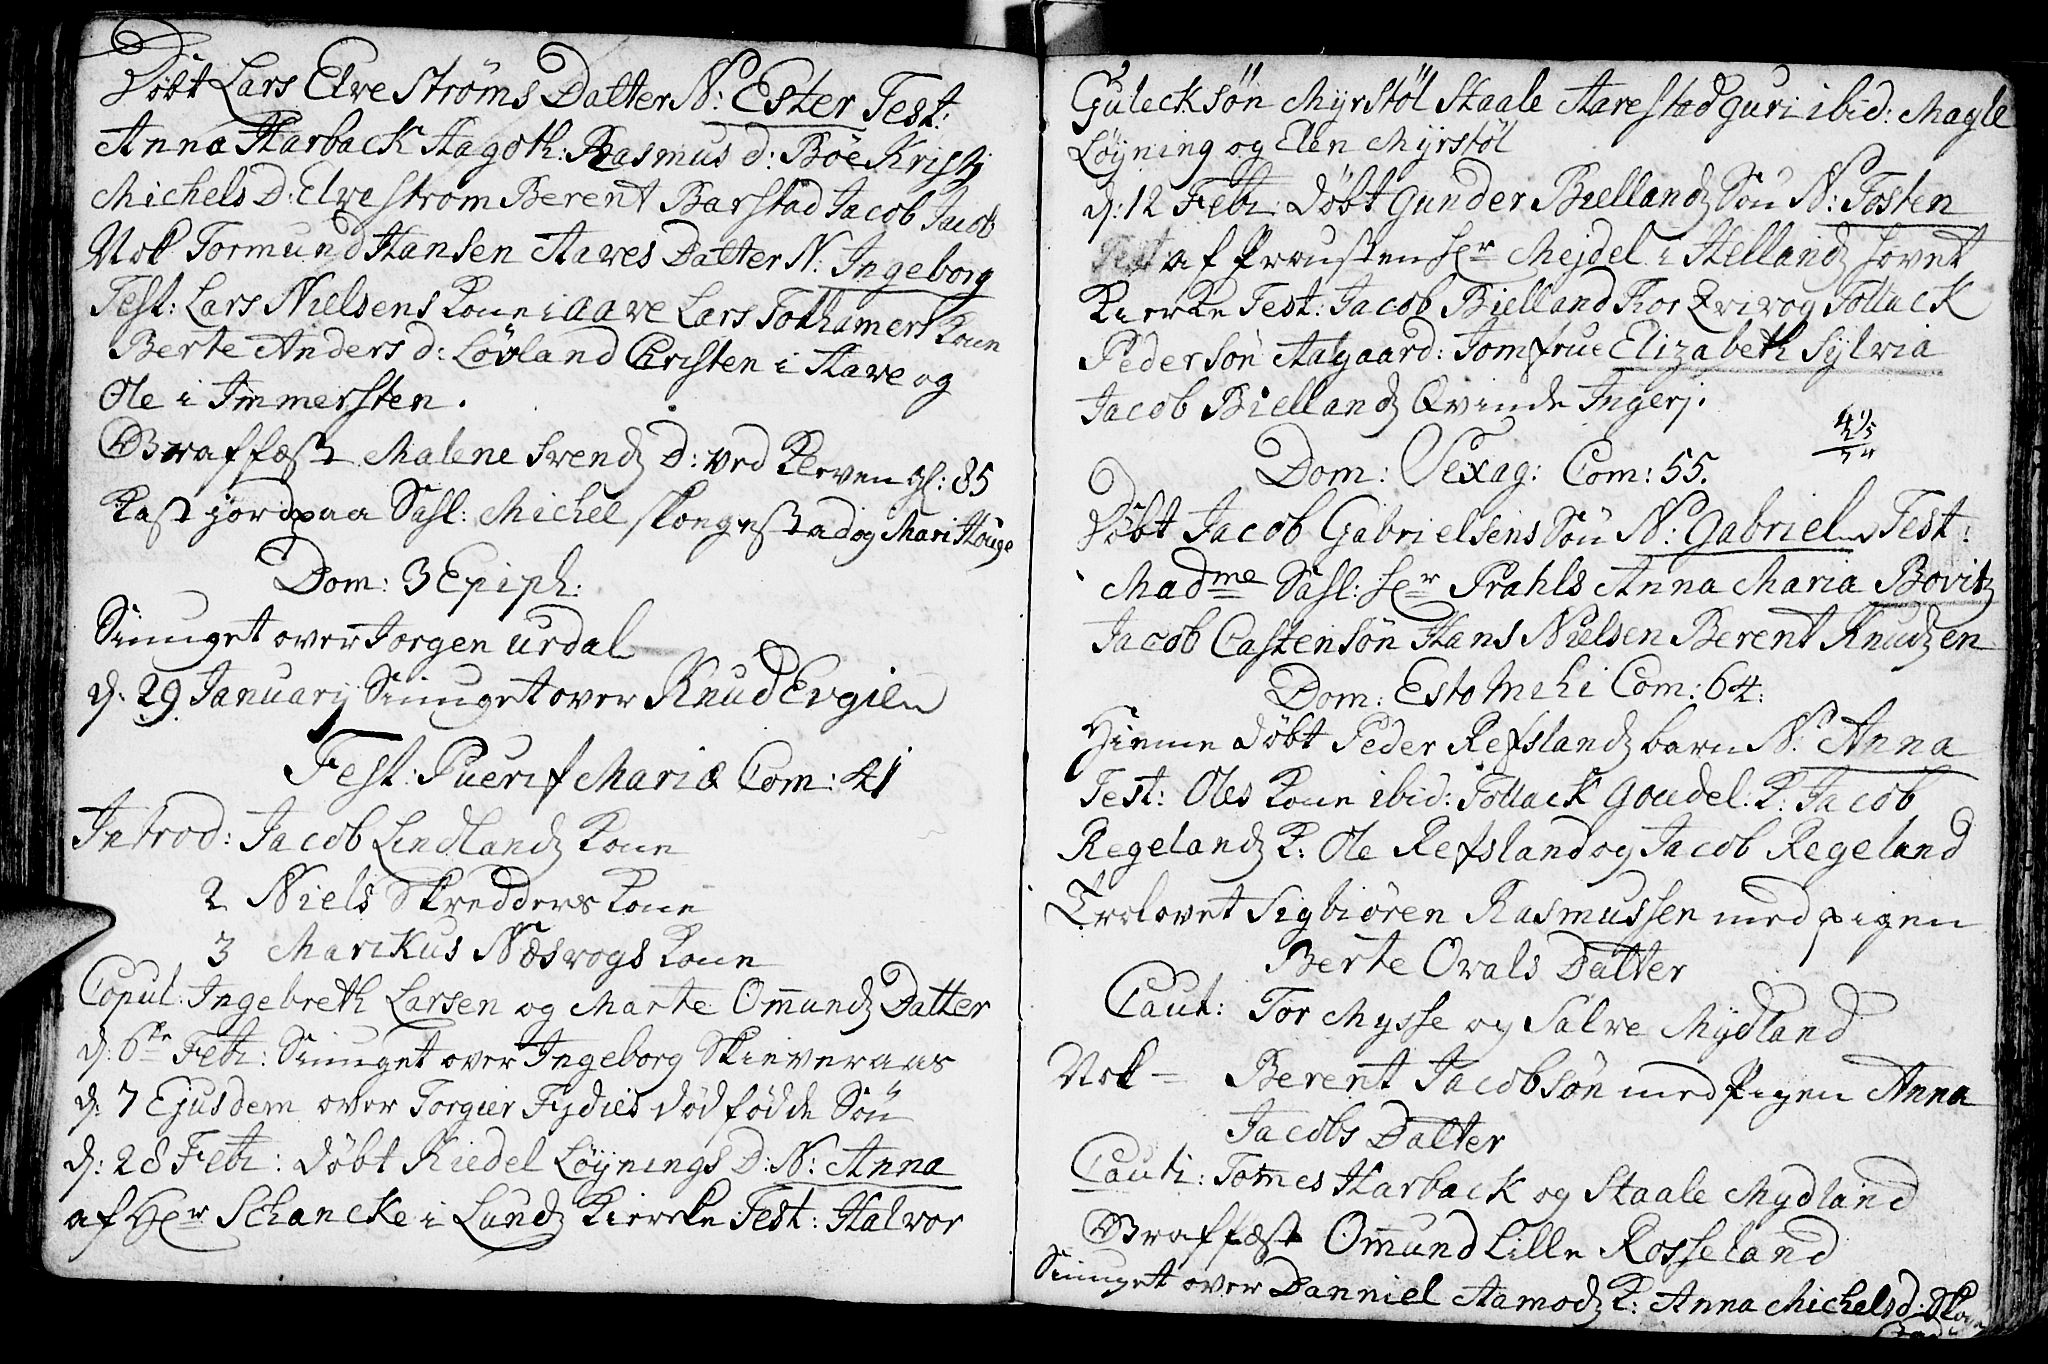 Döbt Lars Elve Ströms Datter N: Ester Test:
Anna Harback Aagoth: Rasmus d: Böe Kristj
Michels D: Elve strøm Berent Barstad Jacob Jacob
Nok Tormund Hansen Aaves Datter N: Ingeborg
Test: Lars Nielsens Kone i aave Lars Tothamers Kone
Berte Anders d: Lövland Christen i Aave og
Ole i Immersten.
Graffæst Malene Svendz D: ved Kleven gl: 85
Kast jord paa Sahl: Michel skongestad og Mari Houge
Dom: 3 Epiph:
Siunget over Jorgen urdal
d: 29 Januarij Siunget over Knud Evgien
Fest: Puerif Mariæ Com: 41
Introd: Jacob Lindlandz Kone
2 Niels Skredders Kone
3 Markus Næsvogs Kone
Copul: Ingebreth Larsen og Marte Omundz Datter
d: 6te Febr: Siunget over Ingeborg Skieveraas
d: 7 Ejusdem over Torgier Fydies dödfödde Sön
d: 28 Febr: döbt Riedel Löynings D: N: Anna
af Hr Schancke i Lundz Kiercke Test: Halvor
Guleck sön Myrstöl Staale Aarestad Guri ibid: Magle
Löyning og Elen Myrstöl
d: 12 Febr: döbt Gunder Biellandz Sön N: Tosten
af Prousten Hr Mejdel i Hellandz hovet
Kierke Test: Jacob Bielland Tor Qvivog Tollack
Pedersön Aalgaard: Jomfrue Elizabeth Sylvia
Jacob Biellandz Qvinde Ingerj.
Dom: Sexag: Com: 55.
Döbt Jacob Gabrielsens Sön N: Gabriel Test:
Madme Sahl: Hr Prahls Anna Maria Bovitz
Jacob Castensön Hans Nielsen Berent Knudzen
Dom: Esto Mihi Com: 64:
Hieme döbt Peder Refslandz barn N: Anna
Test: Oles Kone ibid: Tollack Goudel: K: Jacob
Regelandz K: Ole Refsland og Jacob Regeland
Trolovet Sigbiören Rasmussen med pigen
Berte Ovals Datter
Caut: Tor Mysse og Salve Mydland
Nok - Berent Jacobsön med Pigen Anna
Jacobs Datter
Cauti: Tomes Harback og Staale Mydland
Graffæst Omund Lille Rosseland
Siunget over Danniel Aamodz K: Anna Michelsd: